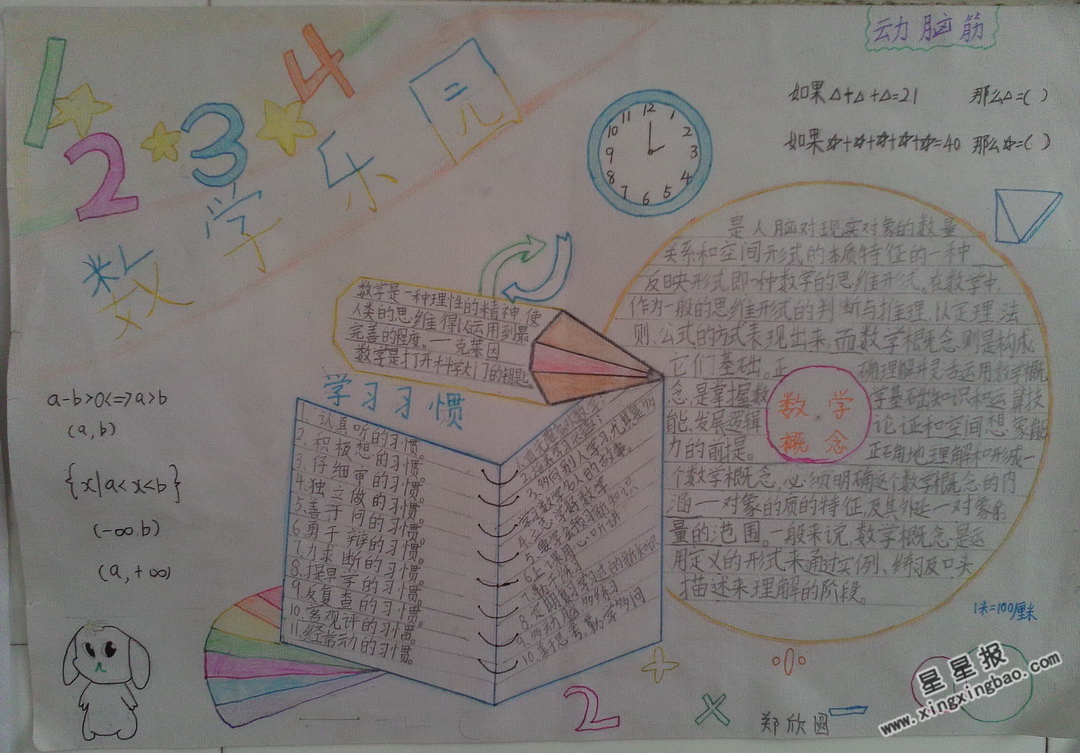 1 2 3 4
数学乐元
动脑筋
如果△+△+△=21 那么△=( )
如果☆+☆+☆+☆+☆=40 那么☆=( )
12
11 1
10 2
9 3
8 4
7 6 5
数学是一种理性的精神,使
人类的思维得以运用到最
完善的程度。——克莱因
数学是打开科学大门的钥匙
是人脑对现实对象的数量
关系和空间形式的本质特征的一种
反映形式,即一种数学的思维形式。在数学中,
作为一般的思维形式的判断与推理,以定理、法
则、公式的方式表现出来,而数学概念则是构成
它们基础。正确理解并灵活运用数学概
念,是掌握数学基础知识和运算技
能、发展逻辑论证和空间想象能
力的前提。正确地理解和形成一
个数学概念,必须明确这个数学概念的内
涵——对象的质的特征,及其外延——对象的
量的范围。一般来说,数学概念是运
用定义的形式来通过实例、练习及口头
描述来理解的阶段。
数学
概念
a-b>0<=>a>b
(a,b)
{x|a<x<b}
(-∞.b)
(a,+∞)
学习习惯
1、认真听的习惯。
2、积极想的习惯。
3、仔细审的习惯。
4、独立做的习惯。
5、善于问的习惯。
6、勇于辩的习惯。
7、力求断的习惯。
8、提早学的习惯。
9、反复查的习惯。
10、客观评的习惯。
11、经常动的习惯。
9、多动脑多练习
10、善于思考,勤学多问
1米=100厘米
2 + × ÷ -
郑欣圆
星星报
www.xingxingbao.com